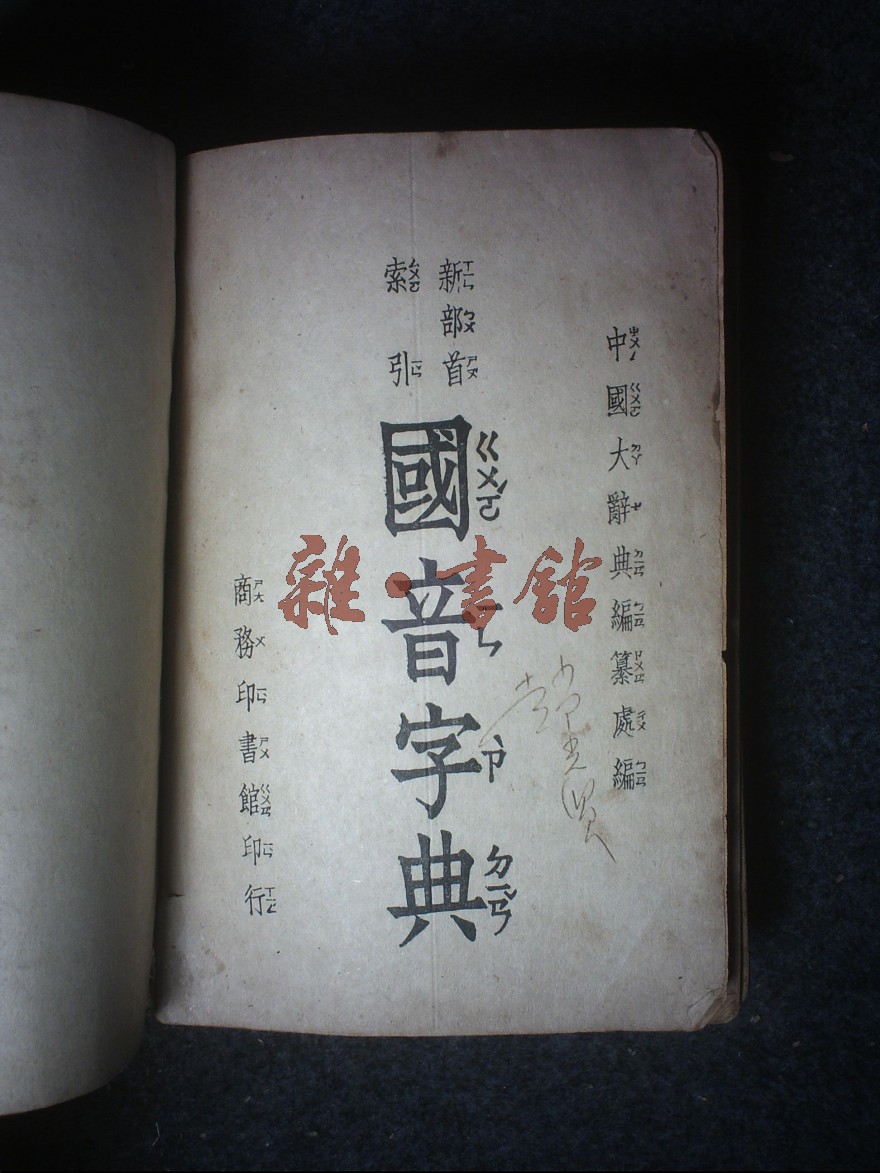 中國大辭典編纂處編
新部首
索引
國音字典
ㄍㄨㄛˊ
ㄧㄣ
ㄗˋ
ㄉㄧㄢˇ
商務印書館印行
雜·書館